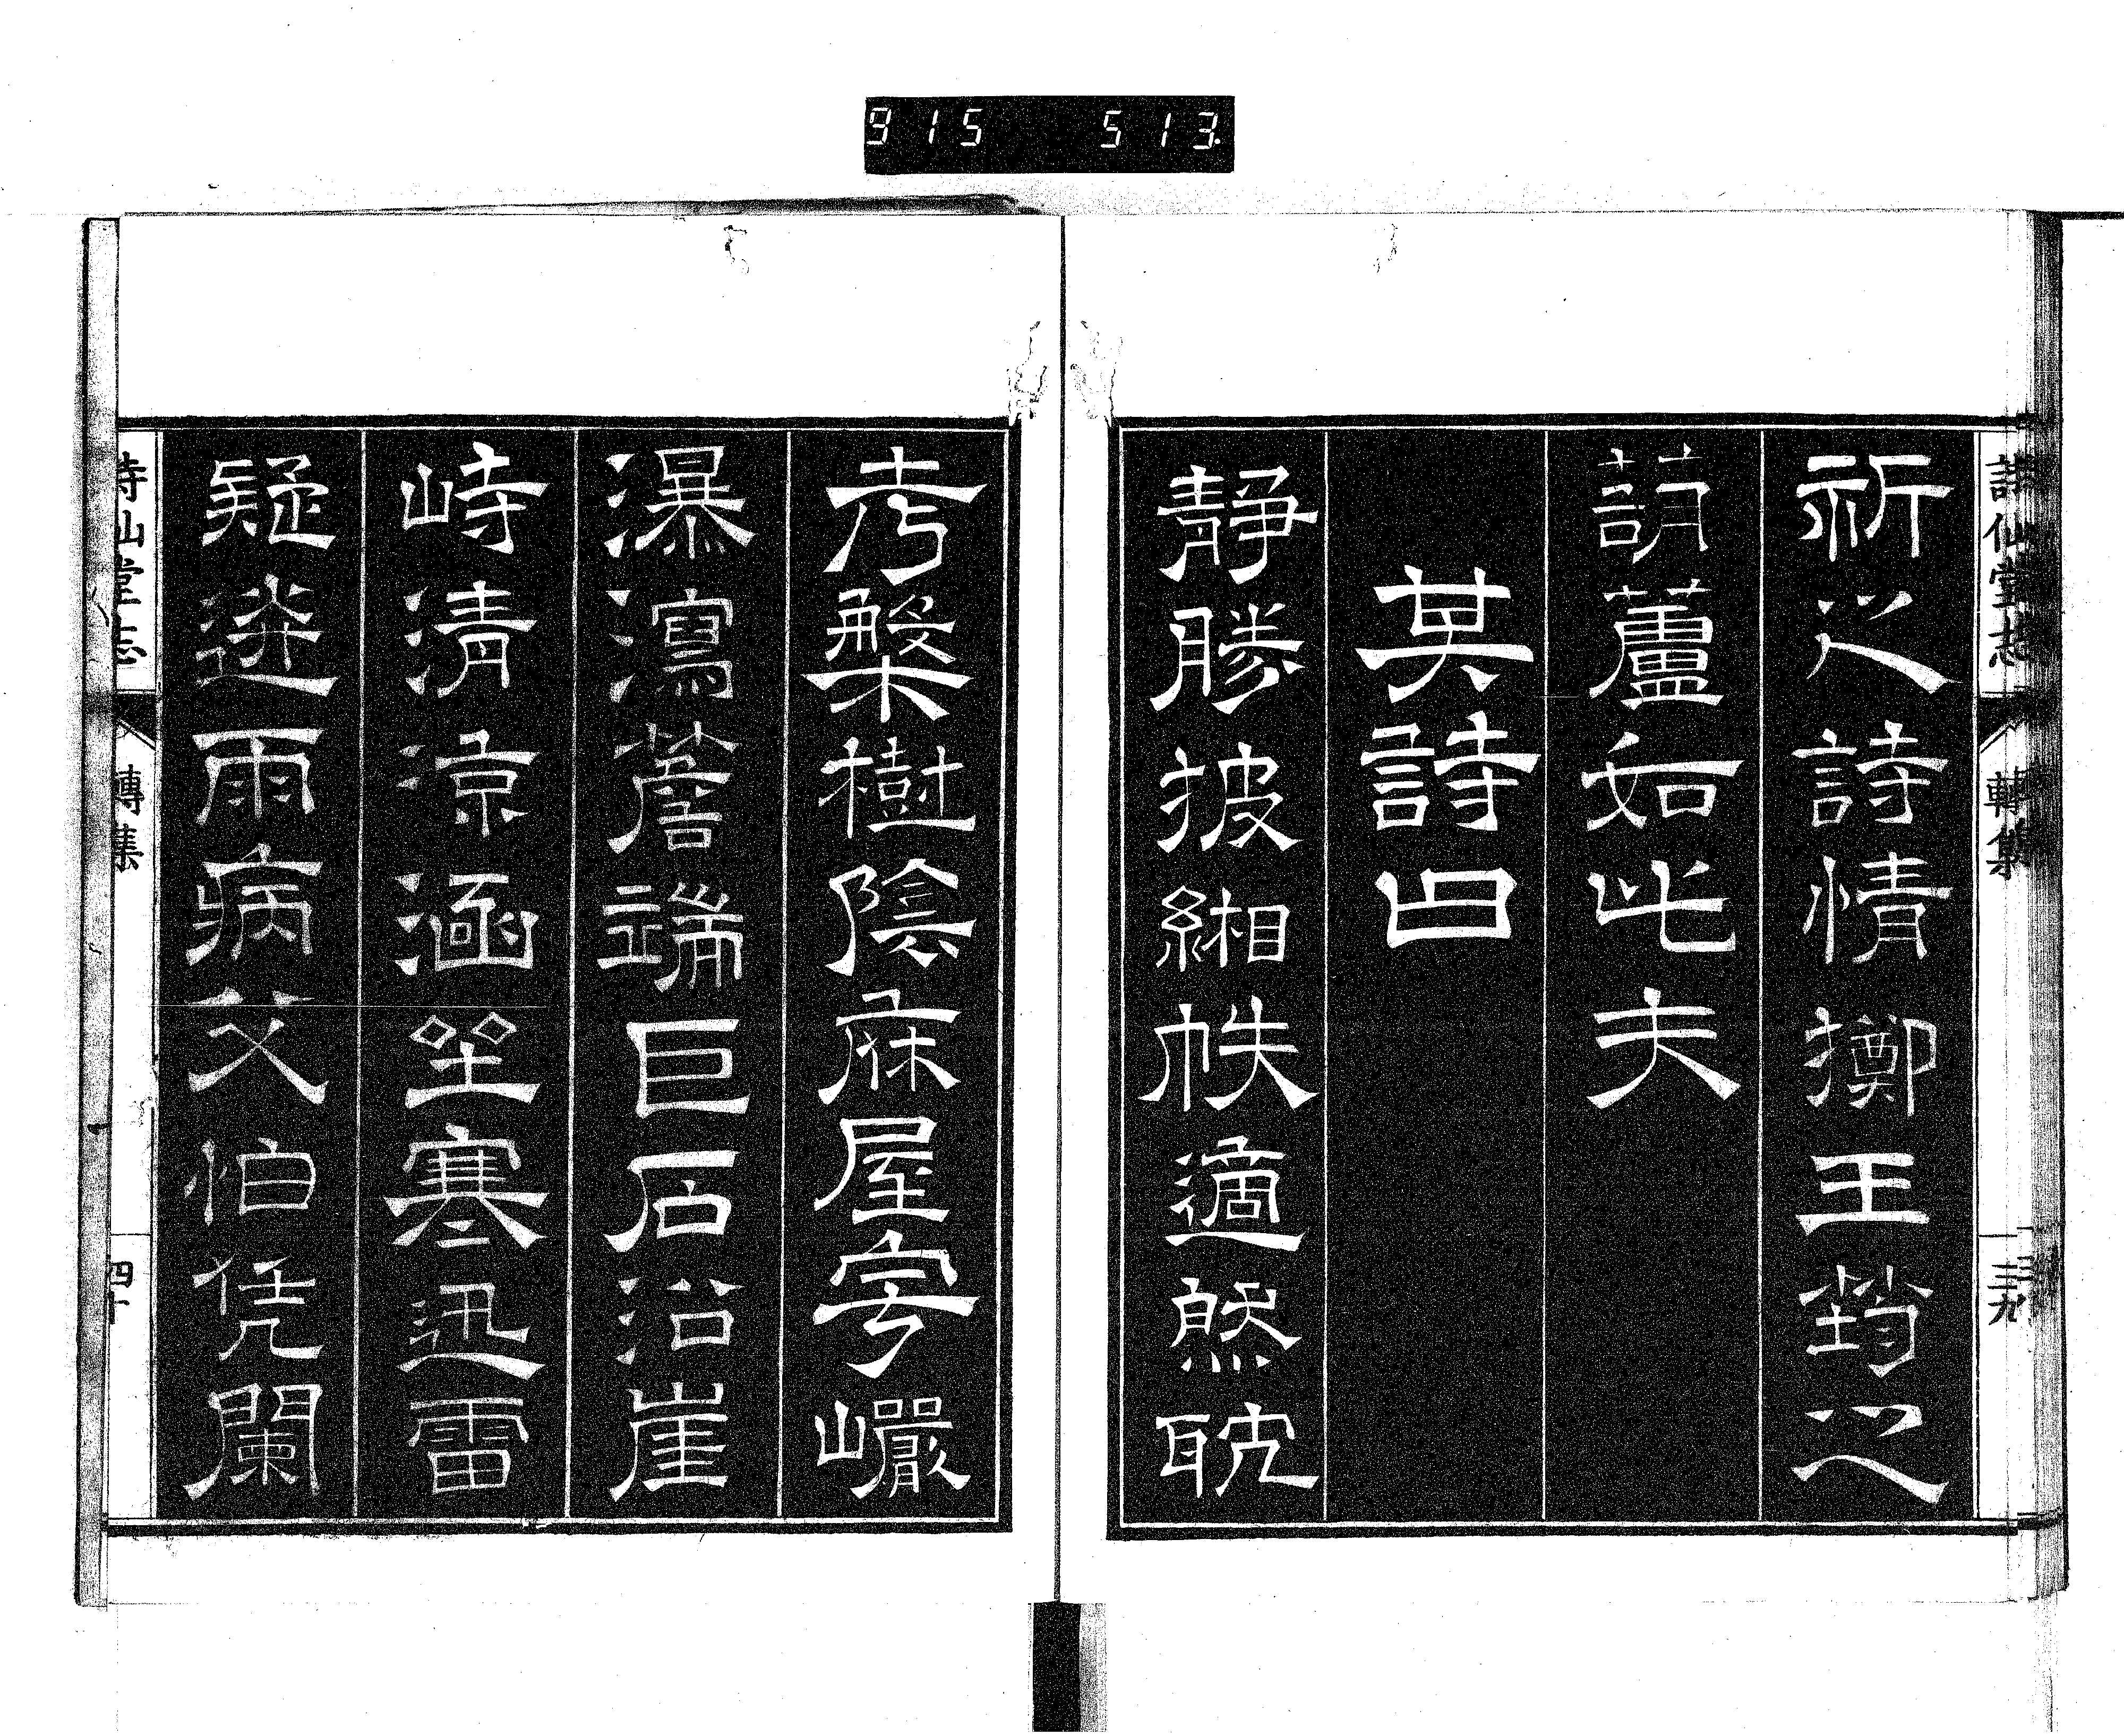 915 513.
詩仙堂志 轉集 三十九
祈之詩情擲王筠之
葫蘆如此夫
其詩曰
靜勝披緗帙適然耽
考槃樹陰庥屋宇巘
瀑瀉簷端巨石沿崖
峙清涼涵坐寒迅雷
疑迸雨病父怕凭闌
詩仙堂志 轉集 四十